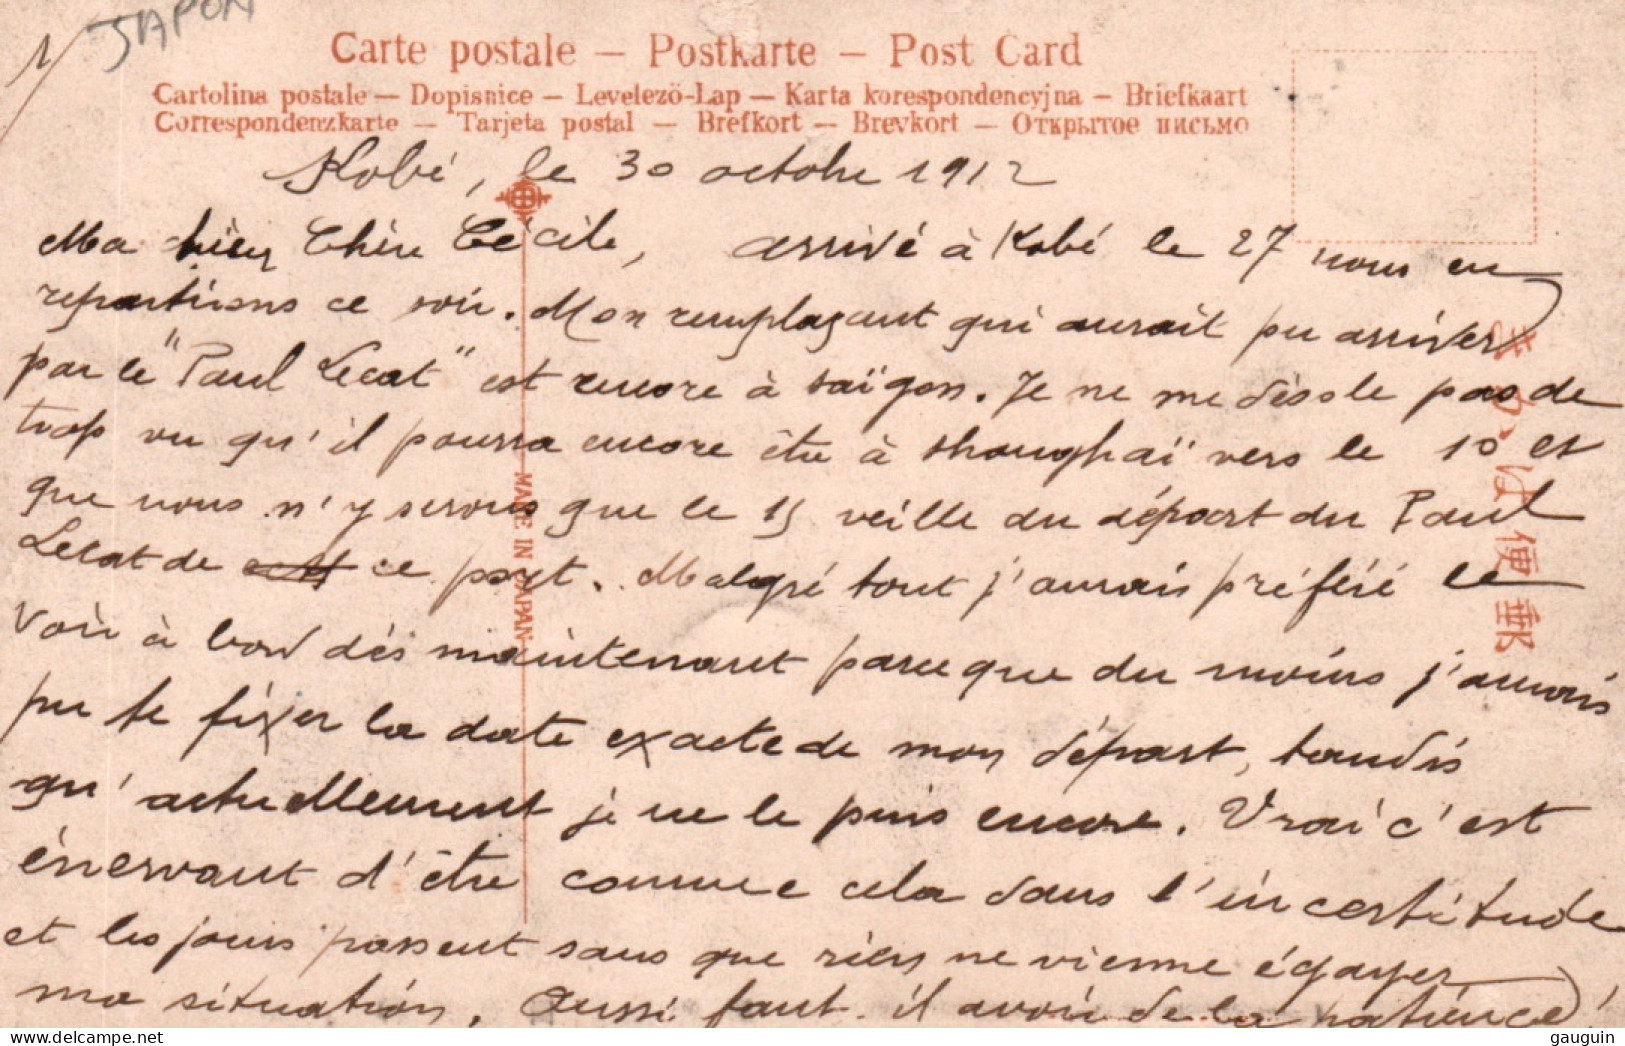 1/ JAPON
Carte postale — Postkarte — Post Card
Cartolina postale — Dopisnice — Levelezö-Lap — Karta korespondencyjna — Briefkaart
Correspondenzkarte — Tarjeta postal — Brefkort — Brevkort — Открытое письмо
Kobé, le 30 octobre 1912
Ma bien Chère Cécile, arrivé à Kobé le 27 nous en
repartirons ce soir. Mon remplaçant qui aurait pu arriver
par le "Paul Lecat" est encore à Saïgon. Je ne me désole pas de
trop vu qu'il pourra encore être à Shanghaï vers le 10 et
que nous n'y serons que le 15 veille du départ du Paul
Lecat de ce port. Malgré tout j'aurais préféré le
voir à bord dés maintenant parceque du moins j'aurais
pu te fixer la date exacte de mon départ, tandis
qu'actuellement je ne le puis encore. Vrai c'est
énervant d'être comme cela dans l'incertitude
et les jours passent sans que rien ne vienne égayer
ma situation. Aussi faut il avoir de la patience!
MADE IN JAPAN
きかは便郵
gauguin